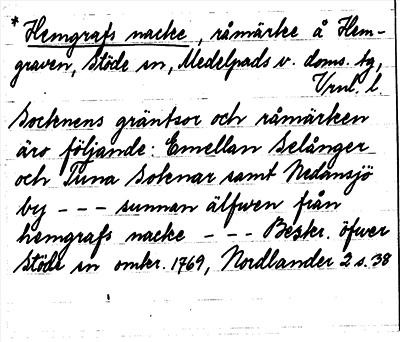 * Hemgrafs nacke, råmärke å Hem-
graven, Stöde sn, Medelpads v. doms. tg,
Vrnl. l
Socknens gräntsor och råmärken
äro följande: Emellan Selånger
och Tuna Soknar samt Nedansjö
by - - - sunnan älfwen från
hemgrafs nacke - - - Beskr. öfwer
Stöde sn omkr. 1769, Nordlander 2 s. 38